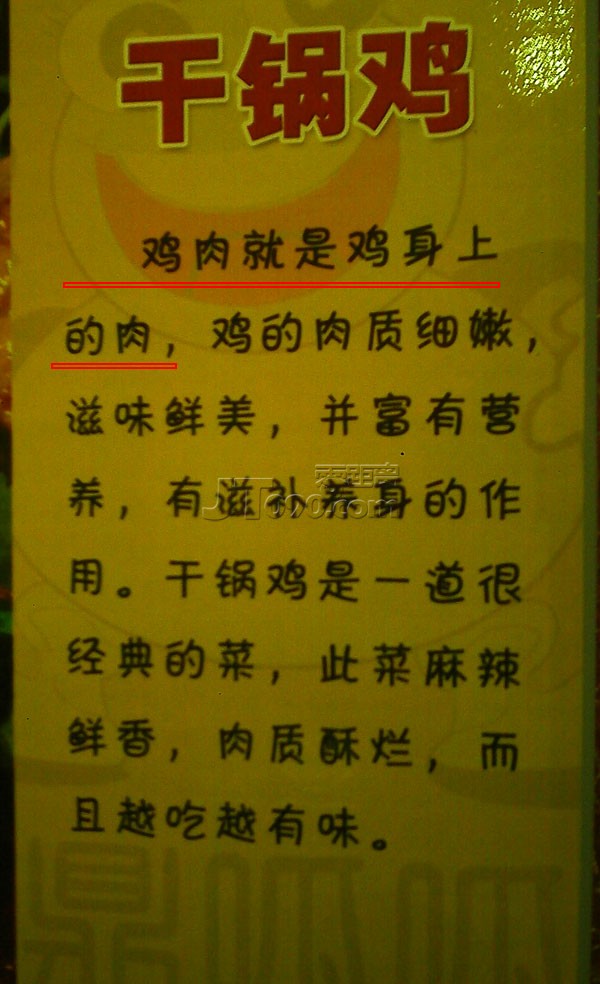 干锅鸡
鸡肉就是鸡身上
的肉，鸡的肉质细嫩，
滋味鲜美，并富有营
养，有滋补养身的作
用。干锅鸡是一道很
经典的菜，此菜麻辣
鲜香，肉质酥烂，而
且越吃越有味。